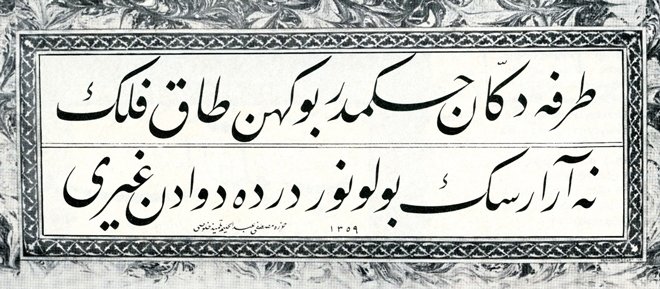 طرفه دكّان حكمدر بو كهن طاق فلك
نه آرارسك بولونور درده دوادن غيرى
١٣٥٩